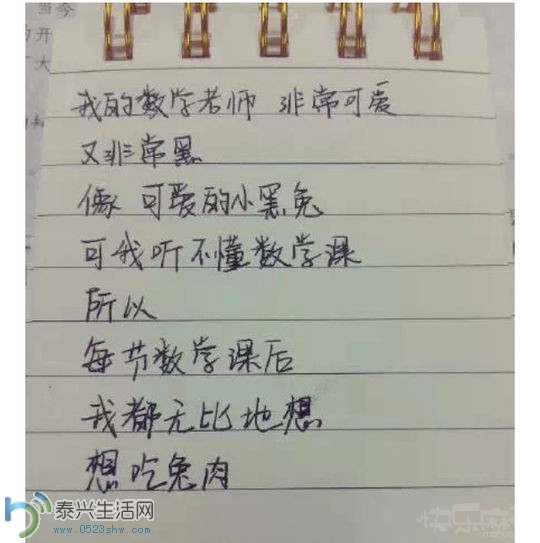 当今
的开
大
我的数学老师 非常可爱
又非常黑
像 可爱的小黑兔
可我听不懂数学课
所以
每节数学课后
我都无比地想
想吃兔肉
泰兴生活网
www.0523shw.com
快乐麻